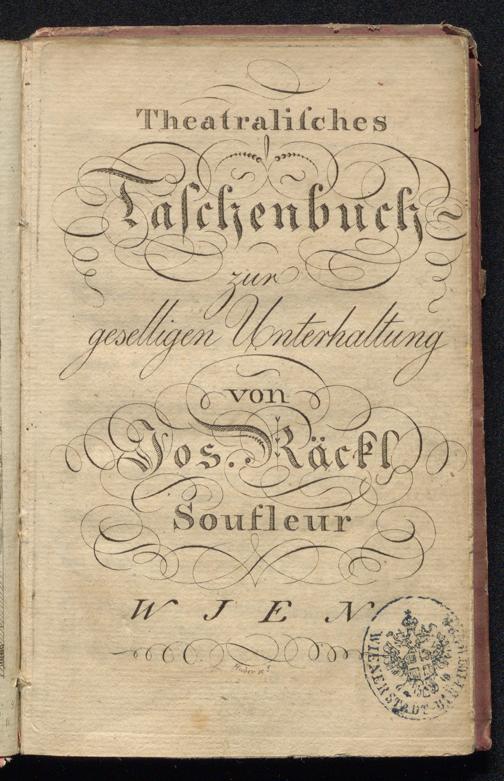 Theatraliſches
Taſchenbuch
zur
geselligen Unterhaltung
von
Jos. Räckl
Soufleur
WIEN
WIENER STADT-BIBLIOTHEK